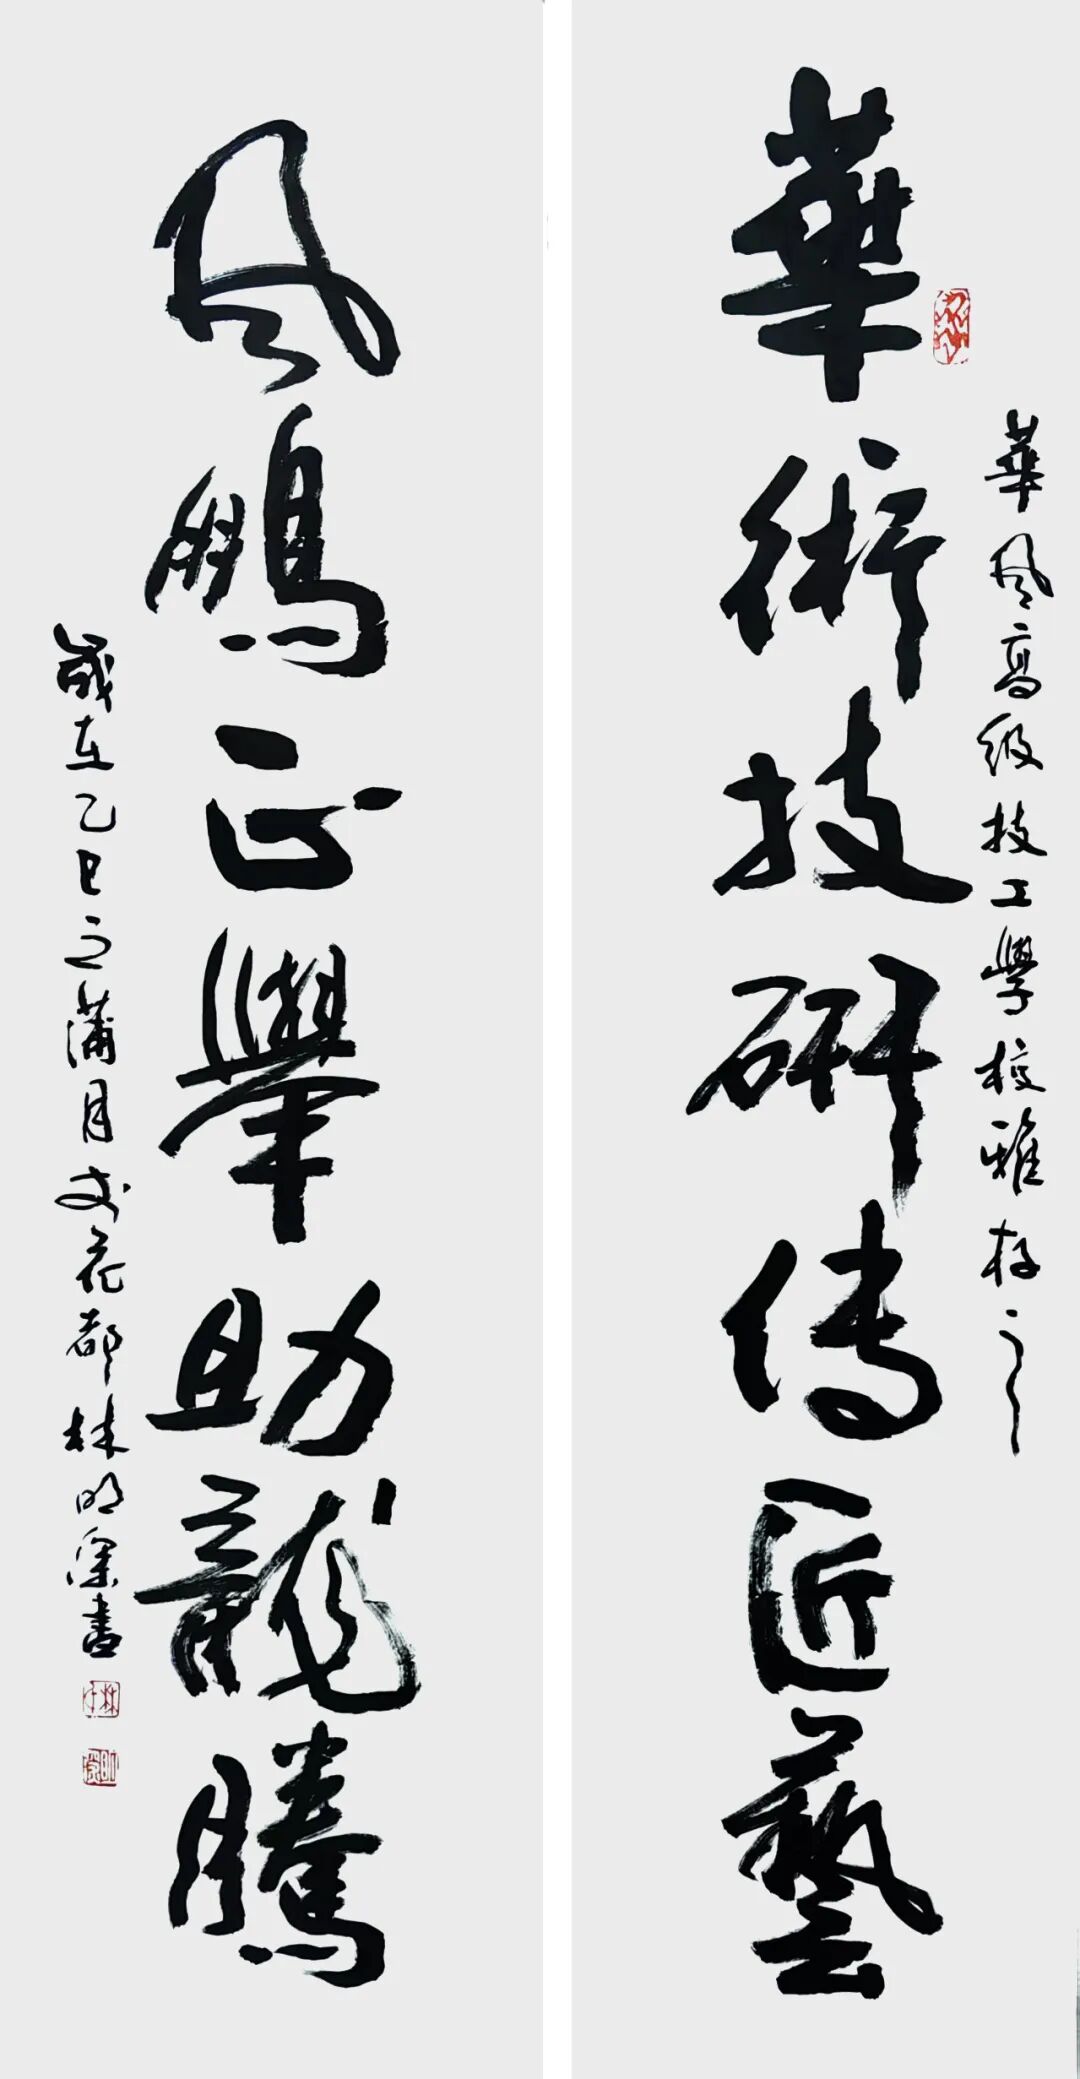 華風高级技工學校雅存之
華術技研传匠藝
风鹏正舉助龍騰
歲在乙巳之蒲月於花都林明深書